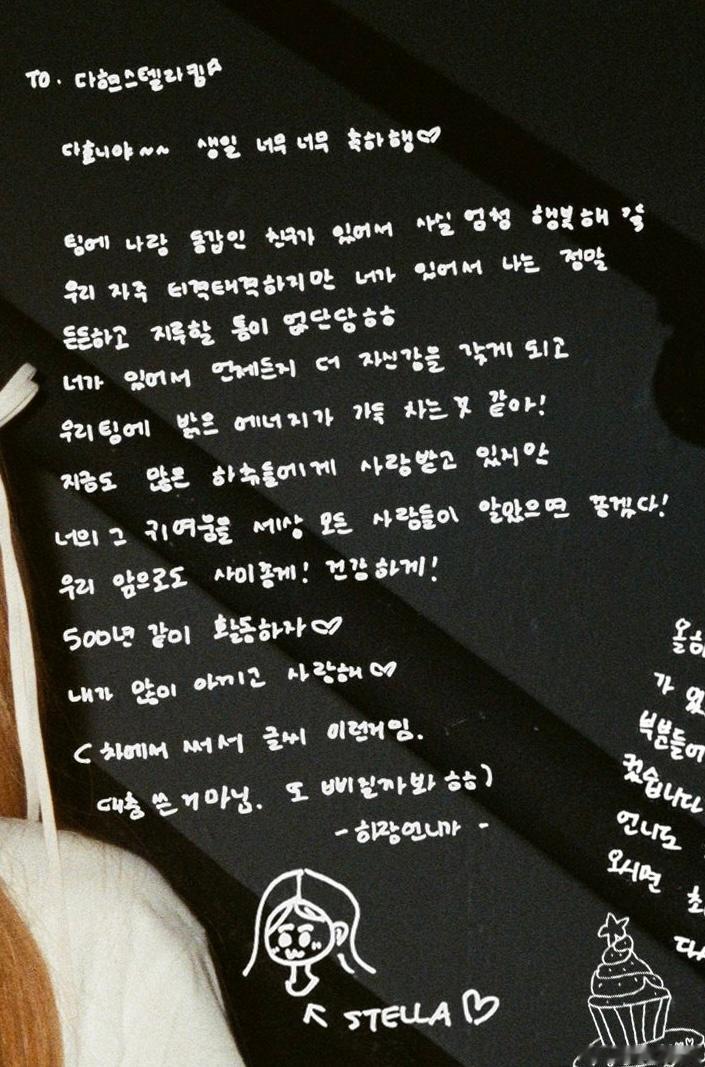 TO. 다현스텔라킴
다효니야~~ 생일 너무 너무 축하행♡
팀에 나랑 동갑인 친구가 있어서 사실 엄청 행복해
우리 자주 티격태격하지만 너가 있어서 나는 정말
든든하고 지루할 틈이 없단당ㅎㅎ
너가 있어서 언제든지 더 자신감을 갖게 되고
우리팀에 밝은 에너지가 가득 차는 것 같아!
지금도 많은 하츄들에게 사랑받고 있지만
너의 그 귀여움을 세상 모든 사람들이 알았으면 좋겠다!
우리 앞으로도 사이좋게! 건강하게!
500년 같이 활동하자♡
내가 많이 아끼고 사랑해♡
( 차에서 써서 글씨 이런거임.
대충 쓴거아님. 또 삐질까봐 ㅎㅎ)
-히강언니가 -
↖ STELLA ♡
올해
가 있
부분들에
컸습니다
언니도
오시면